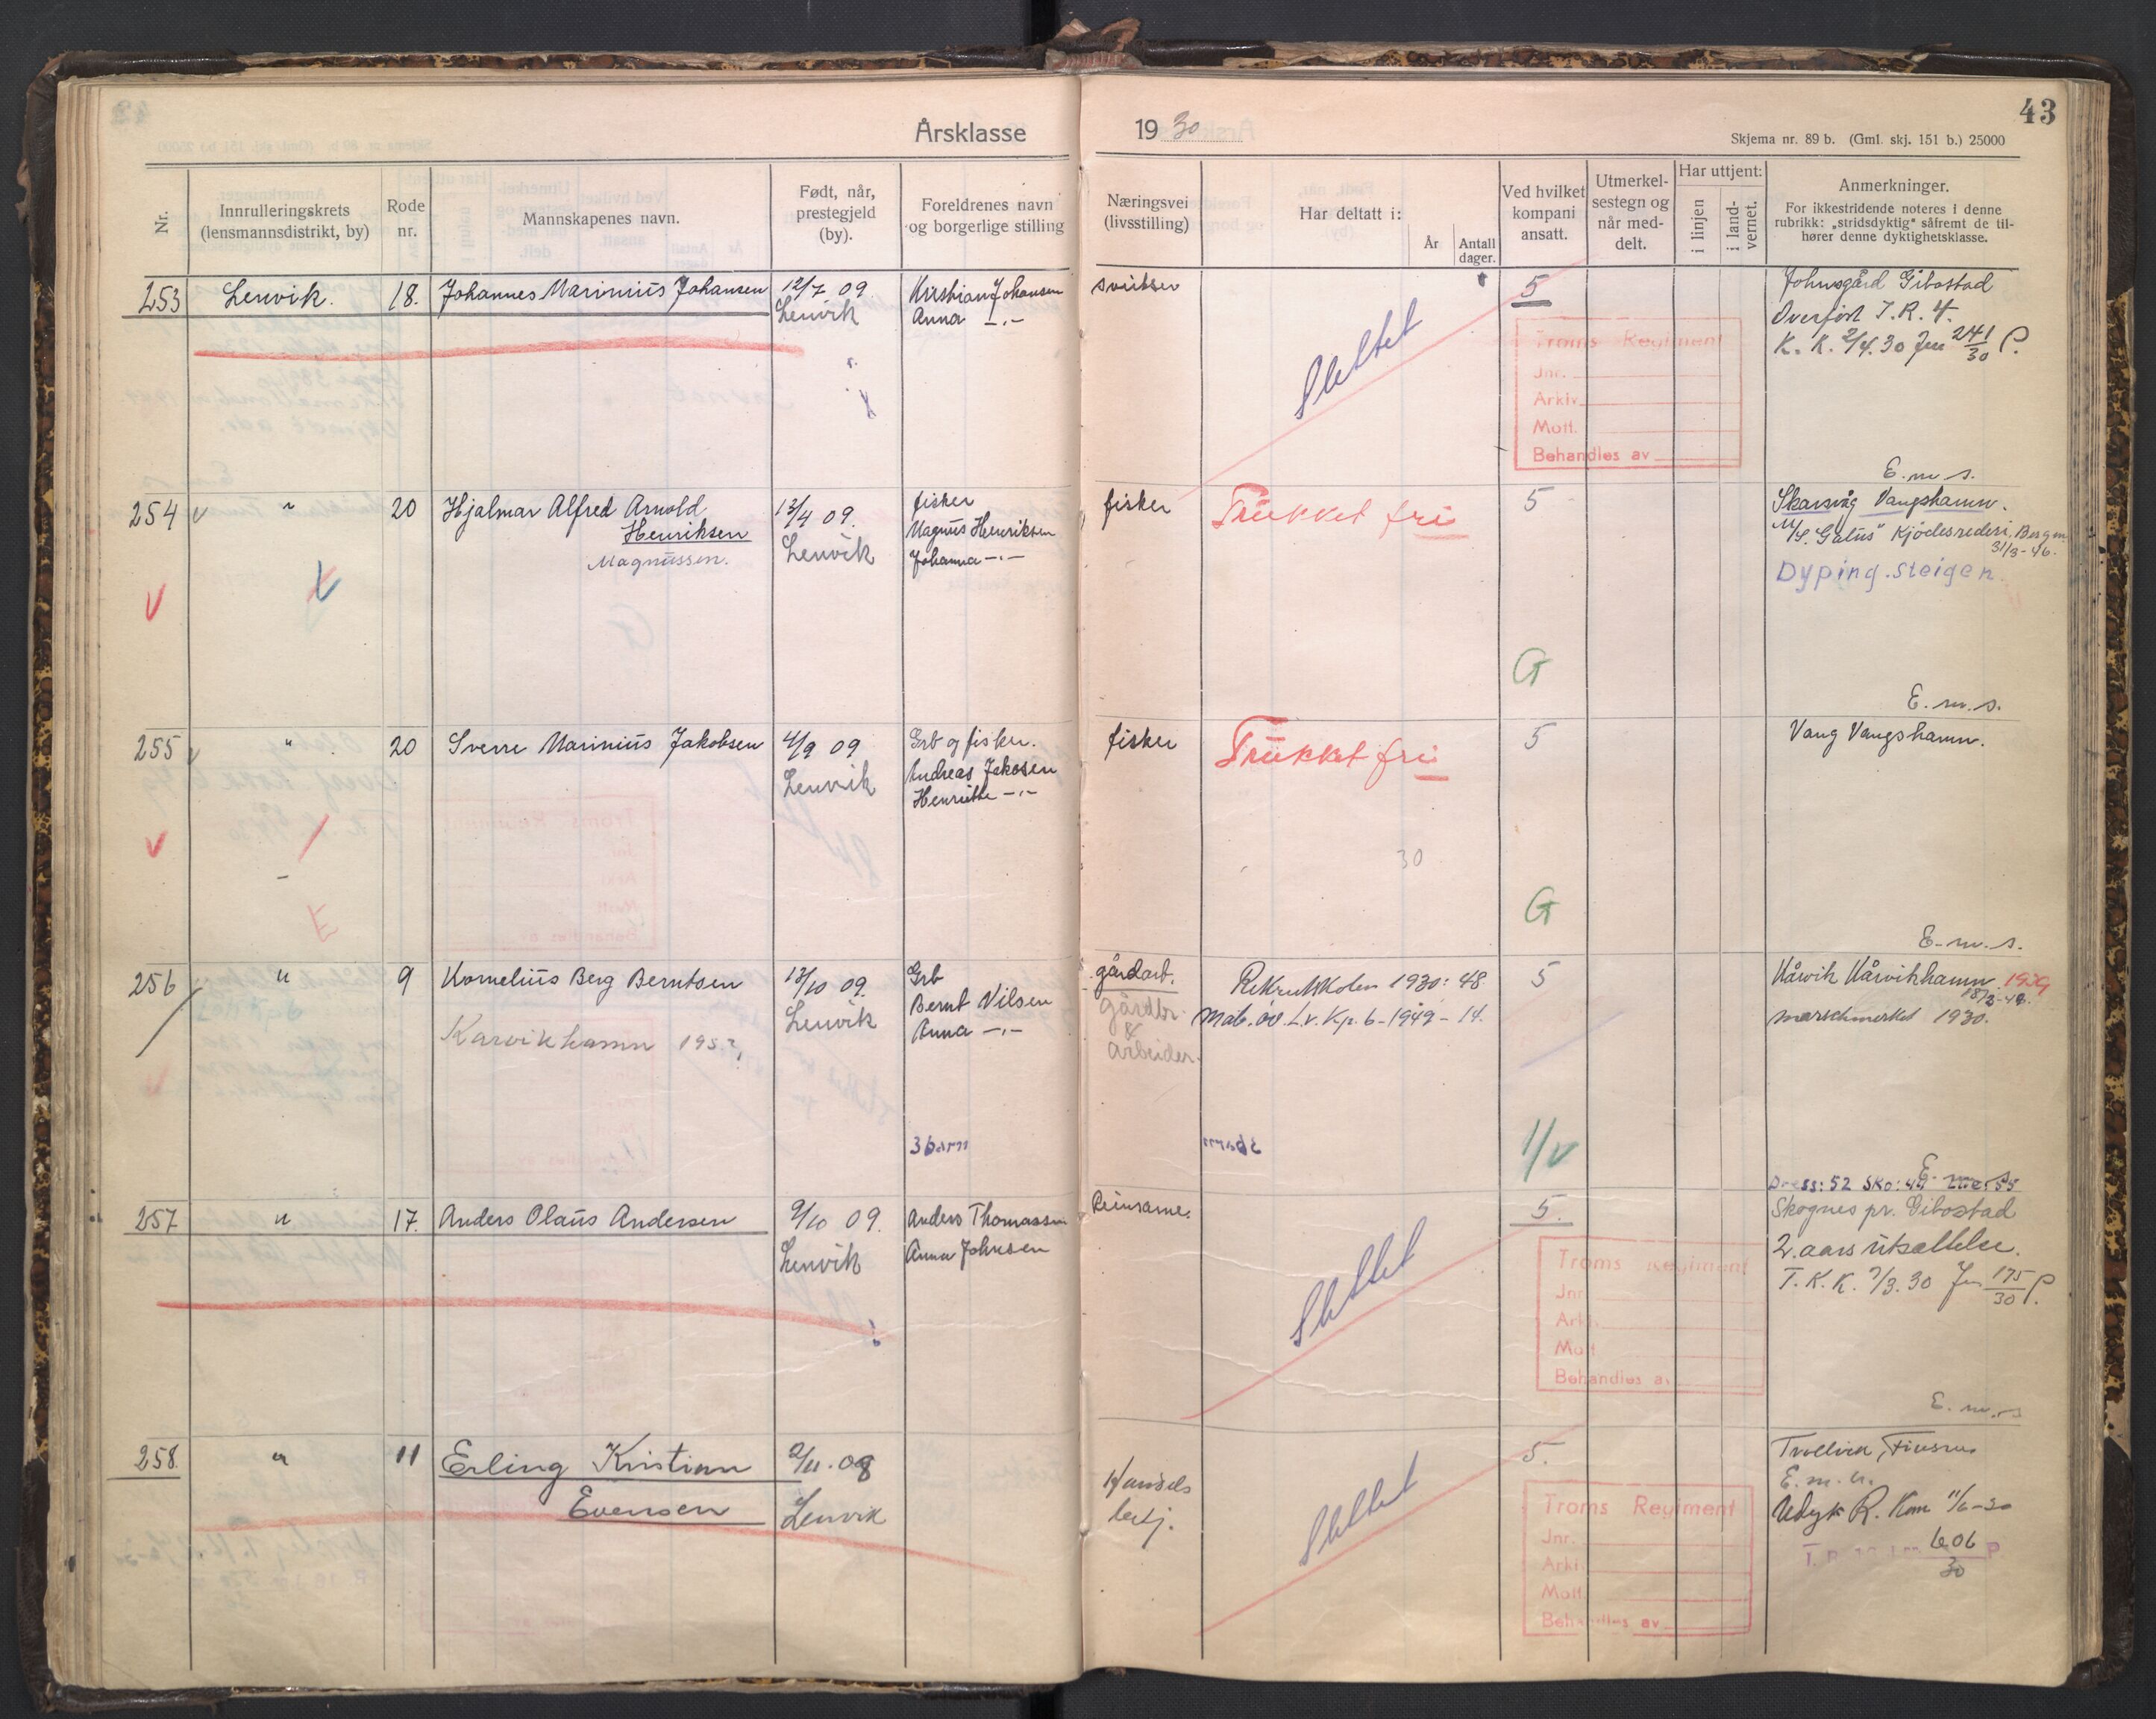 43
Årsklasse 1930
Skjema nr. 89 b. (Gml. skj. 151 b.) 25000
Nr.
Innrulleringskrets
(lensmannsdistrikt, by)
Rode
nr.
Mannskapenes navn.
Født, når,
prestegjeld
(by).
Foreldrenes navn
og borgerlige stilling
Næringsvei
(livsstilling)
Har deltatt i:
År
Antall
dager.
Ved hvilket
kompani
ansatt.
Utmerkel-
sestegn og
når med-
delt.
Har uttjent:
i linjen
i land-
vernet.
Anmerkninger.
For ikkestridende noteres i denne
rubrikk: „stridsdyktig" såfremt de til-
hører denne dyktighetsklasse.
253 Lenvik. 18. Johannes Marinius Johansen
12/7 09
Lenvik
Kristian Johansen
Anna -"-
Slettet
5
Troms Regiment
Jnr.
Arkiv
Mott.
Behandles av
Johnsgård Gibostad
Overført I.R. 4.
K. K. 2/4.30 Jnr 241/30 P.
E.m.s.
254 " 20 Hjalmar Alfred Arnold
Henriksen
Magnussen.
13/4 09.
Lenvik
fisker
Magnus Henriksen
Johanna -"-
fisker
Trukket fri
5
G
Skarsvåg Vangshamn.
M/S. "Galus" Kjødesrederi, Bergen
31/3-46.
Dyping. Steigen.
E.m.s.
255 " 20 Sverre Marinius Jakobsen
4/9 09
Lenvik
Grb og fisker.
Andreas Jakosen
Henriette -"-
fisker
Trukket fri
30
5
G
Vang Vangshamn.
E
E.m.s.
256 " 9 Kornelius Berg Berntsen
Karvikhamn
13/10 09.
Lenvik
Grb
Bernt Nilsen
Anna -"-
3 barn
gårdarb.
gårdbr.
&
arbeider.
Rekruttskolen 1930: 48
Mob. øv. L.v. Kp. 6-1949-14.
5
1/V
Kårvik Kårvikhamn
marschmerket 1930.
E.m.s.
257 " 17. Anders Olaus Andersen
9/10 09.
Lenvik
Anders Thomassen
Anna Johnsen
Reinsame.
Slettet
5.
Troms Regiment
Jnr
Ark
Mott
Behandles av
Dress: 52 Sko: 44
Skognes pr. Gibostad
2. aars utsættelse.
T. K. K. 7/3.30 Jnr 175/30 P.
E.m.s
258. " 11 Erling Kristian
Evensen
2/11.08
Lenvik
Handels
betj.
Slettet
5.
Troms Regiment
Jnr.
Arki
Mott
Behandles av
Trollvik, Finsnes
E.m.u.
Udyk R. Kom 11/6-30
606
30